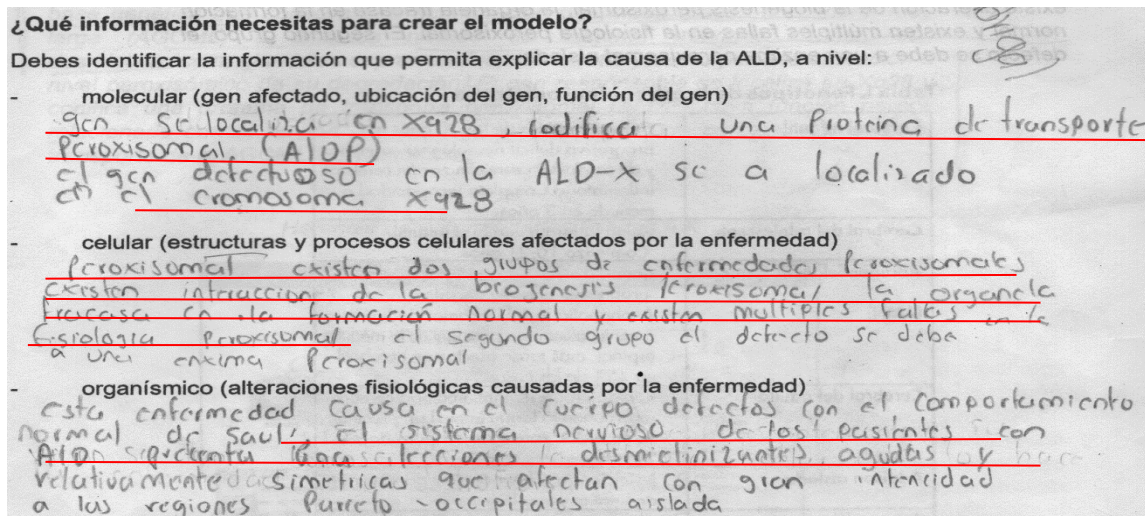 ¿Qué información necesitas para crear el modelo?
Debes identificar la información que permita explicar la causa de la ALD, a nivel:
- molecular (gen afectado, ubicación del gen, función del gen)
gen se localiza en Xq28, codifica una Proteina de transporte
Peroxisomal (ALDP)
el gen defectuoso en la ALD-X se a localizado
en el cromosoma Xq28
- celular (estructuras y procesos celulares afectados por la enfermedad)
Peroxisomal existen dos grupos de enfermedades Peroxisomales
existen interaccion de la biogenesis Peroxisomal la organela
fracasa en la formación normal y existen multiples fallas en la
fisiologia Peroxisomal el segundo grupo el defecto se deba
a una enxima Peroxisomal
- organísmico (alteraciones fisiológicas causadas por la enfermedad)
esta enfermedad causa en el cuerpo defectos con el comportamiento
normal de Saul, el sistema nervioso de los pasientes con
desmielinizantes, agudas y
relativamente simetricas que afectan con gran intencidad
a las regiones Parieto-occipitales aislada